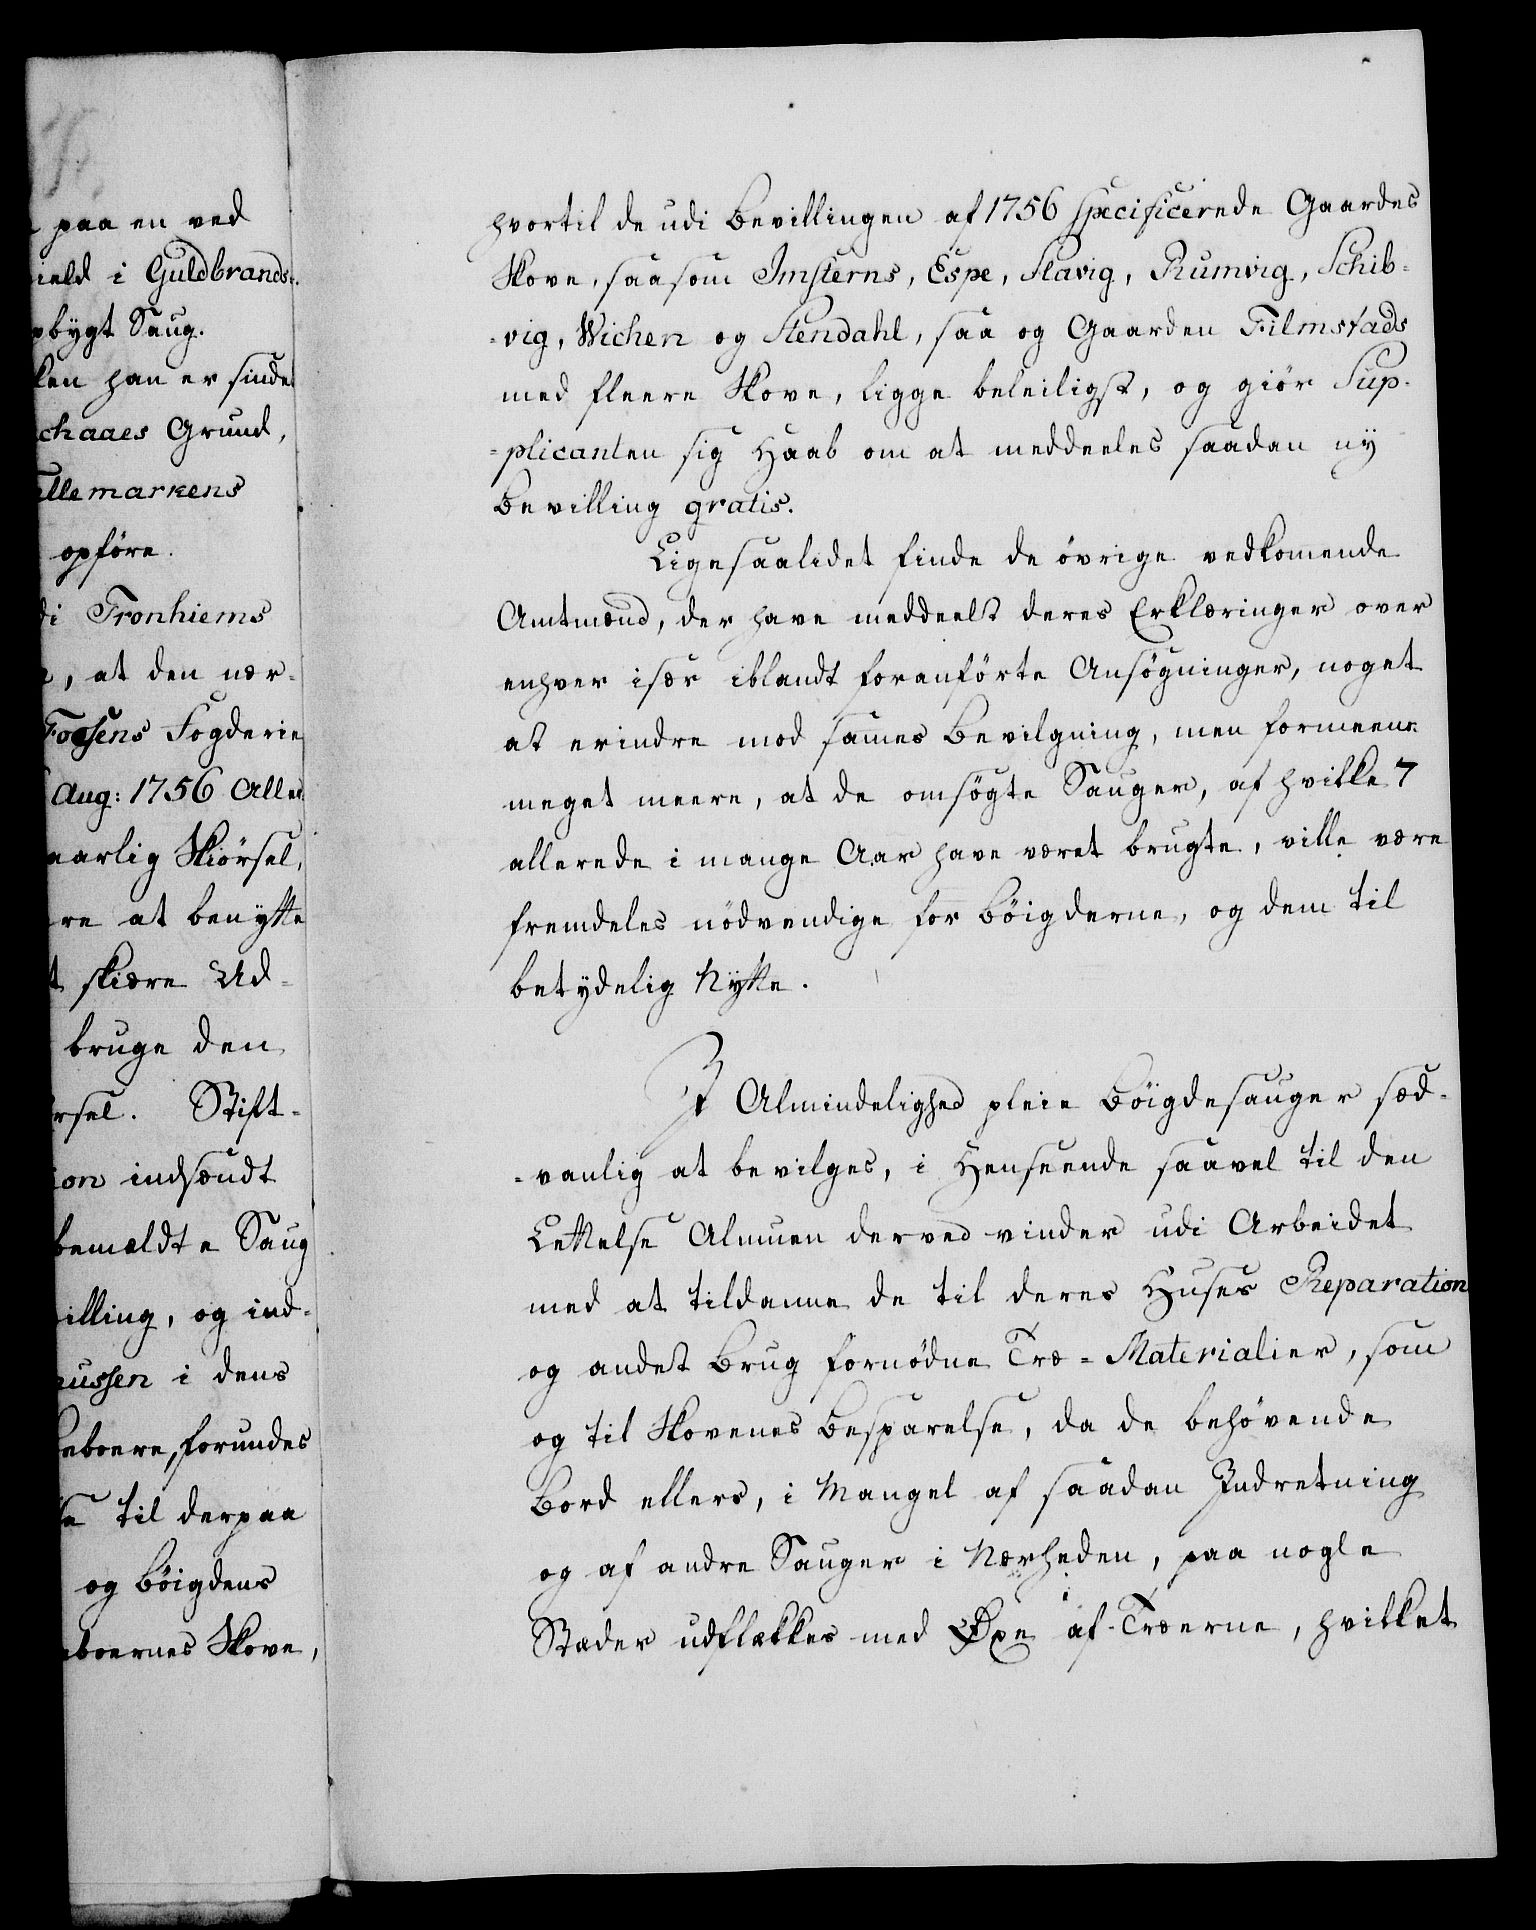 paa en ved
ield i Guldbrands-
bygt Saug.
ken han er sindet
chaaes Grund,
ellemarkens
opføre.
di Tronhiems
, at den nær-
Foesens Fogderie
Aug: 1756 Aller
aarlig Skiørsel,
re at benytte
t skiære Ud-
bruge den
rsel. Stift-
ion indsendt
bemældte Saug
villing, og ind-
mussen i dens
Beboere, forundes
se til derpaa
og Bøigdens
eboernes Skove,
hvortil de udi Bevillingen af 1756 specificerede Gaardes
Skove, saasom Imsterns, Espe, Slavig, Rumvig, Schib-
-vig, Wichen og Stendahl, saa og Gaarden Filmstads
med fleere Skove, ligge beleiligst, og giør Sup-
-plicanten sig Haab om at meddeeles saadan ny
Bevilling gratis.
Ligesaalidet finde de øvrige vedkomende
Amtmænd, der have meddeelt deres Erklæringer over
enhver især iblandt foranførte Ansøgninger, noget
at erindre mod sames Bevilgning, men formeene
meget meere, at de omsøgte Sauger, af hvilke 7
allerede i mange Aar have været brugte, ville være
fremdeles nødvendige for Bøigderne, og dem til
betydelig Nytte.
I Almindelighed pleie Bøigdesauger sæd-
-vanlig at bevilges, i Henseende saavel til den
Lettelse Almuen derved vinder udi Arbeidet
med at tildanne de til deres Huses Reparation
og andet Brug fornødne Træ-Materialier, som
og til Skovenes Besparelse, da de behøvende
Bord ellers, i Mangel af saadan Indretning
og af andre Sauger i Nærheden, paa nogle
Stæder udflækkes med Øxe af Træerne, hvilket